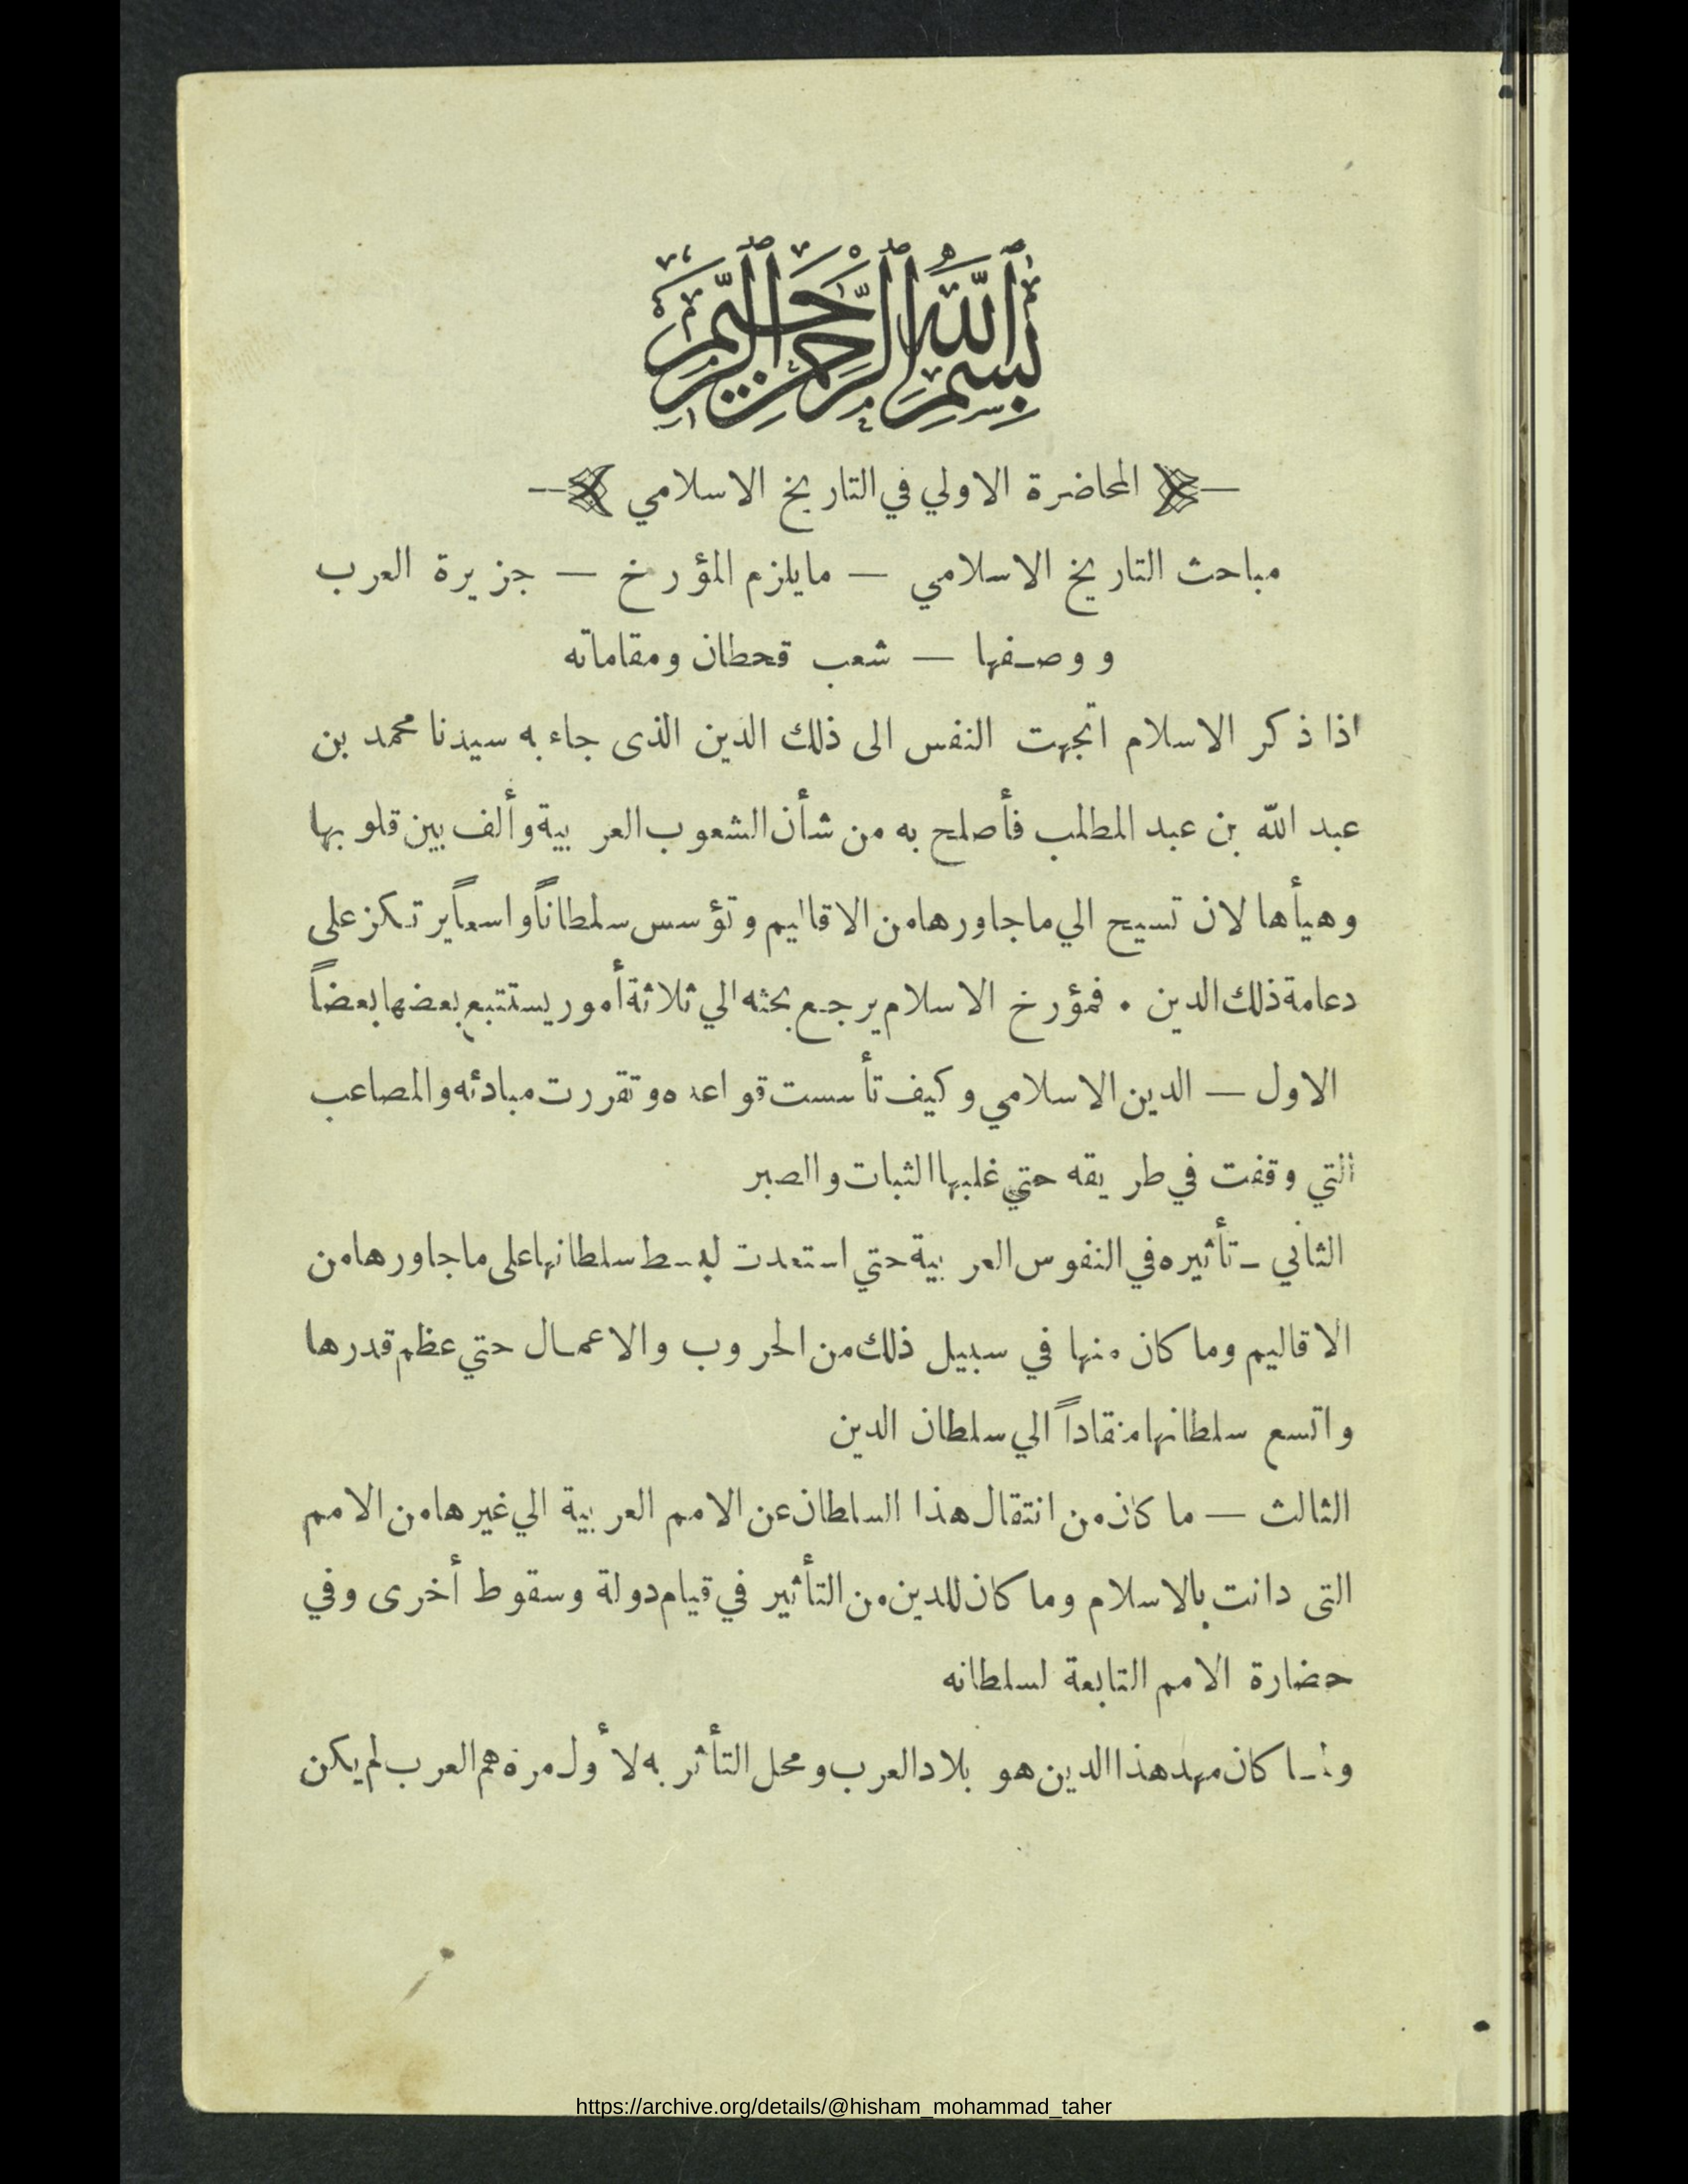 بسم الله الرحمن الرحيم
المحاضرة الاولي في التاريخ الاسلامي
مباحث التاريخ الاسلامي — مايلزم المؤرخ — جزيرة العرب
ووصفها — شعب قحطان ومقاماته
اذا ذكر الاسلام اتجهت النفس الى ذلك الدين الذى جاء به سيدنا محمد بن
عبد الله بن عبد المطلب فأصلح به من شأن الشعوب العربية وألف بين قلوبها
وهيأها لان تسيح الي ماجاورها من الاقاليم وتؤسس سلطاناً واسعاً يرتكز على
دعامة ذلك الدين . فمؤرخ الاسلام يرجع بحثه الي ثلاثة أمور يستتبع بعضها بعضاً
الاول — الدين الاسلامي وكيف تأسست قواعده وتقررت مبادئه والمصاعب
التي وقفت في طريقه حتي غلبها الثبات والصبر
الثاني — تأثيره في النفوس العربية حتي استعدت لبسط سلطانها على ماجاورها من
الاقاليم وما كان منها في سبيل ذلك من الحروب والاعمال حتي عظم قدرها
واتسع سلطانها منقاداً الي سلطان الدين
الثالث — ما كان من انتقال هذا السلطان عن الامم العربية الي غيرها من الامم
التى دانت بالاسلام وما كان للدين من التأثير في قيام دولة وسقوط أخرى وفي
حضارة الامم التابعة لسلطانه
ولما كان مهد هذا الدين هو بلاد العرب ومحل التأثر به لأول مرة هم العرب لم يكن
https://archive.org/details/@hisham_mohammad_taher